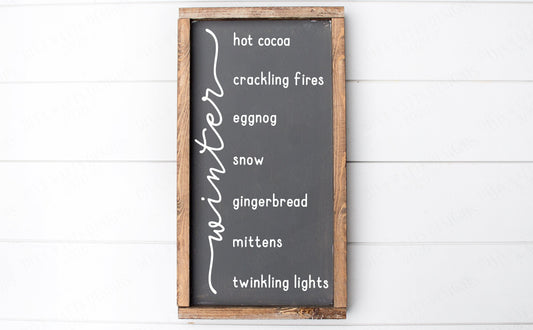 winter
hot cocoa
crackling fires
eggnog
snow
gingerbread
mittens
twinkling lights